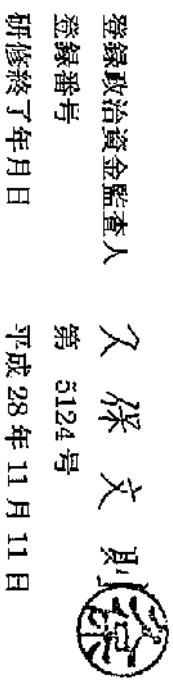 登録政治資金監査人 久保文則
登録番号 第 5124号
研修終了年月日 平成28年11月11日